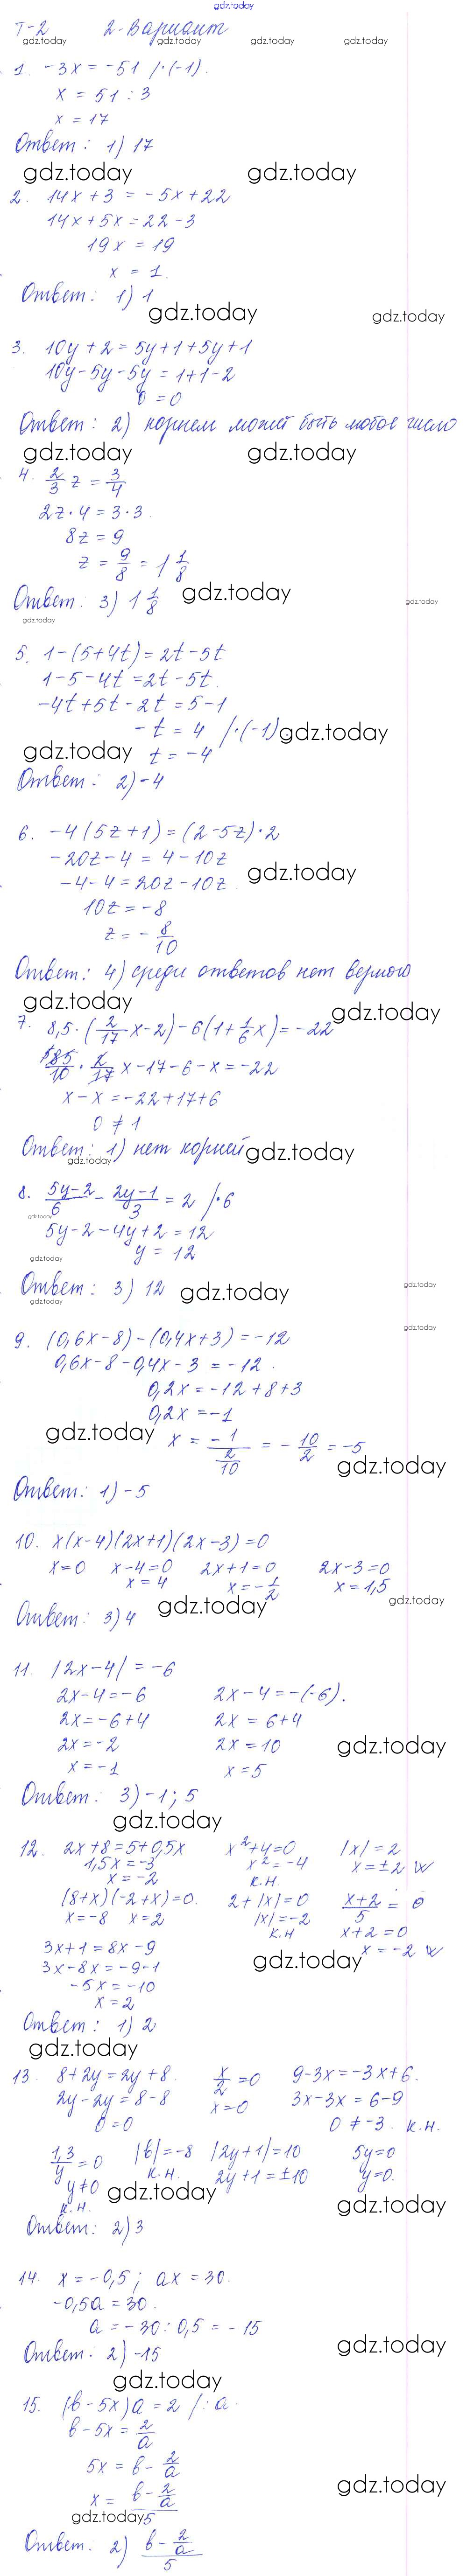 gdz.today
Т-2 2-Вариант
gdz.today gdz.today gdz.today gdz.today
1. -3x = -51 /·(-1).
x = 51 : 3
x = 17
Ответ: 1) 17
gdz.today gdz.today
2. 14x + 3 = -5x + 22
14x + 5x = 22 - 3
19x = 19
x = 1.
Ответ: 1) 1
gdz.today gdz.today
3. 10y + 2 = 5y + 1 + 5y + 1
10y - 5y - 5y = 1 + 1 - 2
0 = 0
Ответ: 2) корнем может быть любое число
gdz.today gdz.today
4. 2/3 z = 3/4
2z · 4 = 3 · 3
8z = 9
z = 9/8 = 1 1/8
Ответ: 3) 1 1/8 gdz.today
gdz.today
gdz.today
5. 1 - (5 + 4t) = 2t - 5t
1 - 5 - 4t = 2t - 5t.
-4t + 5t - 2t = 5 - 1
-t = 4 /·(-1) gdz.today
gdz.today t = -4
Ответ: 2) -4
6. -4(5z + 1) = (2 - 5z) · 2
-20z - 4 = 4 - 10z
gdz.today
-4 - 4 = 20z - 10z.
10z = -8
z = - 8/10
Ответ: 4) среди ответов нет верного
gdz.today gdz.today
7. 8,5 · (2/17 x - 2) - 6(1 + 1/6 x) = -22
85/10 · 2/17 x - 17 - 6 - x = -22
x - x = -22 + 17 + 6
0 ≠ 1
Ответ: 1) нет корней gdz.today
gdz.today
8. 5y-2/6 - 2y-1/3 = 2 /·6
gdz.today
5y - 2 - 4y + 2 = 12
y = 12
gdz.today
Ответ: 3) 12 gdz.today
gdz.today
gdz.today
gdz.today
9. (0,6x - 8) - (0,4x + 3) = -12
0,6x - 8 - 0,4x - 3 = -12.
0,2x = -12 + 8 + 3
0,2x = -1
gdz.today
x = -1 / 2/10 = - 10/2 = -5
gdz.today
Ответ: 1) -5
10. x(x-4)(2x+1)(2x-3) = 0
x = 0 x - 4 = 0 2x + 1 = 0 2x - 3 = 0
x = 4 x = - 1/2 x = 1,5
gdz.today gdz.today
Ответ: 3) 4
11. |2x - 4| = -6
2x - 4 = -6 2x - 4 = -(-6).
2x = -6 + 4 2x = 6 + 4
2x = -2 2x = 10
gdz.today
x = -1 x = 5
Ответ: 3) -1; 5
gdz.today
12. 2x + 8 = 5 + 0,5x x² + 4 = 0 |x| = 2
1,5x = -3 x² = -4 x = ±2 w
x = -2 к.н.
(8+x)(-2+x) = 0. 2 + |x| = 0 x+2/5 = 0
x = -8 x = 2 |x| = -2 x + 2 = 0
к.н
3x + 1 = 8x - 9 gdz.today x = -2 w
3x - 8x = -9 - 1
-5x = -10
x = 2
Ответ: 1) 2
gdz.today
13. 8 + 2y = 2y + 8. x/2 = 0 9 - 3x = -3x + 6.
2y - 2y = 8 - 8 x = 0 3x - 3x = 6 - 9
0 = 0 0 ≠ -3. к.н.
1,3/y = 0 |b| = -8 |2y + 1| = 10 5y = 0
y ≠ 0 к.н. 2y + 1 = ±10 y = 0.
к.н. gdz.today gdz.today
Ответ: 2) 3
14. x = -0,5; ax = 30.
-0,5a = 30.
a = -30 : 0,5 = -15
gdz.today
Ответ: 2) -15
gdz.today
15. (b - 5x)a = 2 /: a.
b - 5x = 2/a
5x = b - 2/a
gdz.today
x = b - 2/a / 5
gdz.today
Ответ: 2) b - 2/a / 5